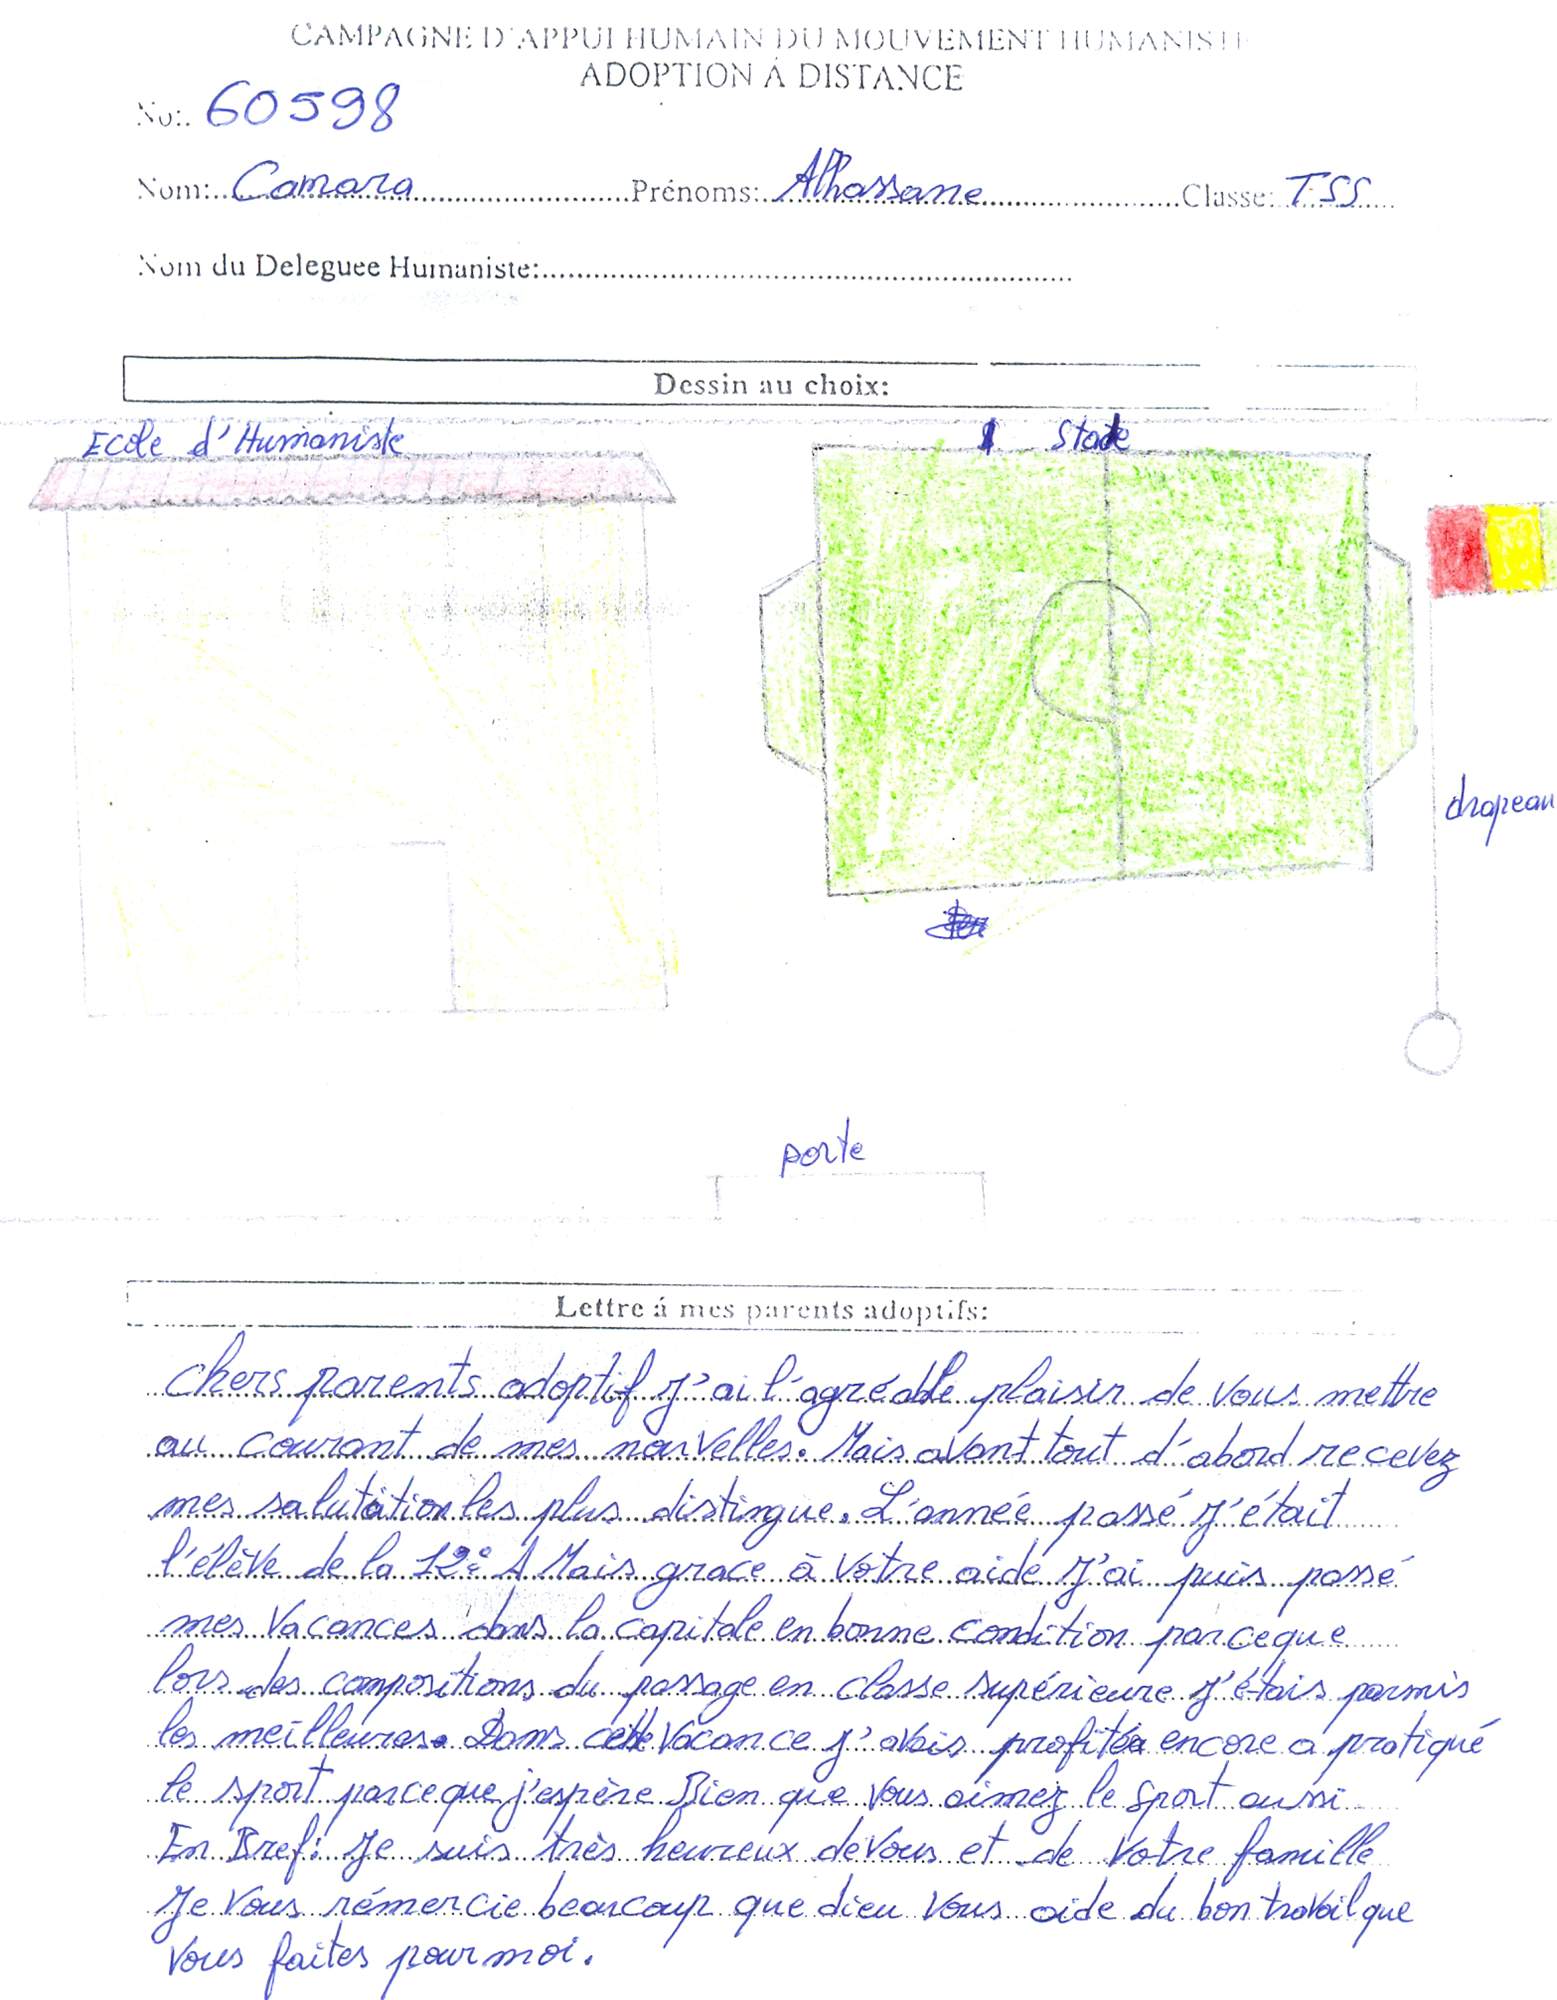 CAMPAGNE D'APPUI HUMAIN DU MOUVEMENT HUMANISTE
ADOPTION Á DISTANCE
No:. 60598
Nom: Camara Prénoms: Alhassane Classe: TSS
Nom du Deleguee Humaniste:
Dessin au choix:
Ecole d'Humaniste
Stade
drapeau
porte
Lettre á mes parents adoptifs:
Chers parents adoptif J'ai l'agréable plaisir de vous mettre
au courant de mes nouvelles. Mais avant tout d'abord recevez
mes salutation les plus distingue. L'année passé J'était
l'élève de la 12è A Mais grace à votre aide J'ai puis passé
mes vacances dans la capitale en bonne condition parceque
lors des compositions du passage en classe supérieure J'étais parmis
les meilleures. Dans cette vacance J'avais profitée encore a pratiqué
le sport parceque j'espère Bien que vous aimez le sport aussi
En Bref: Je suis très heureux de vous et de votre famille
Je vous rémercie beaucoup que dieu vous aide du bon travail que
vous faites pour moi.